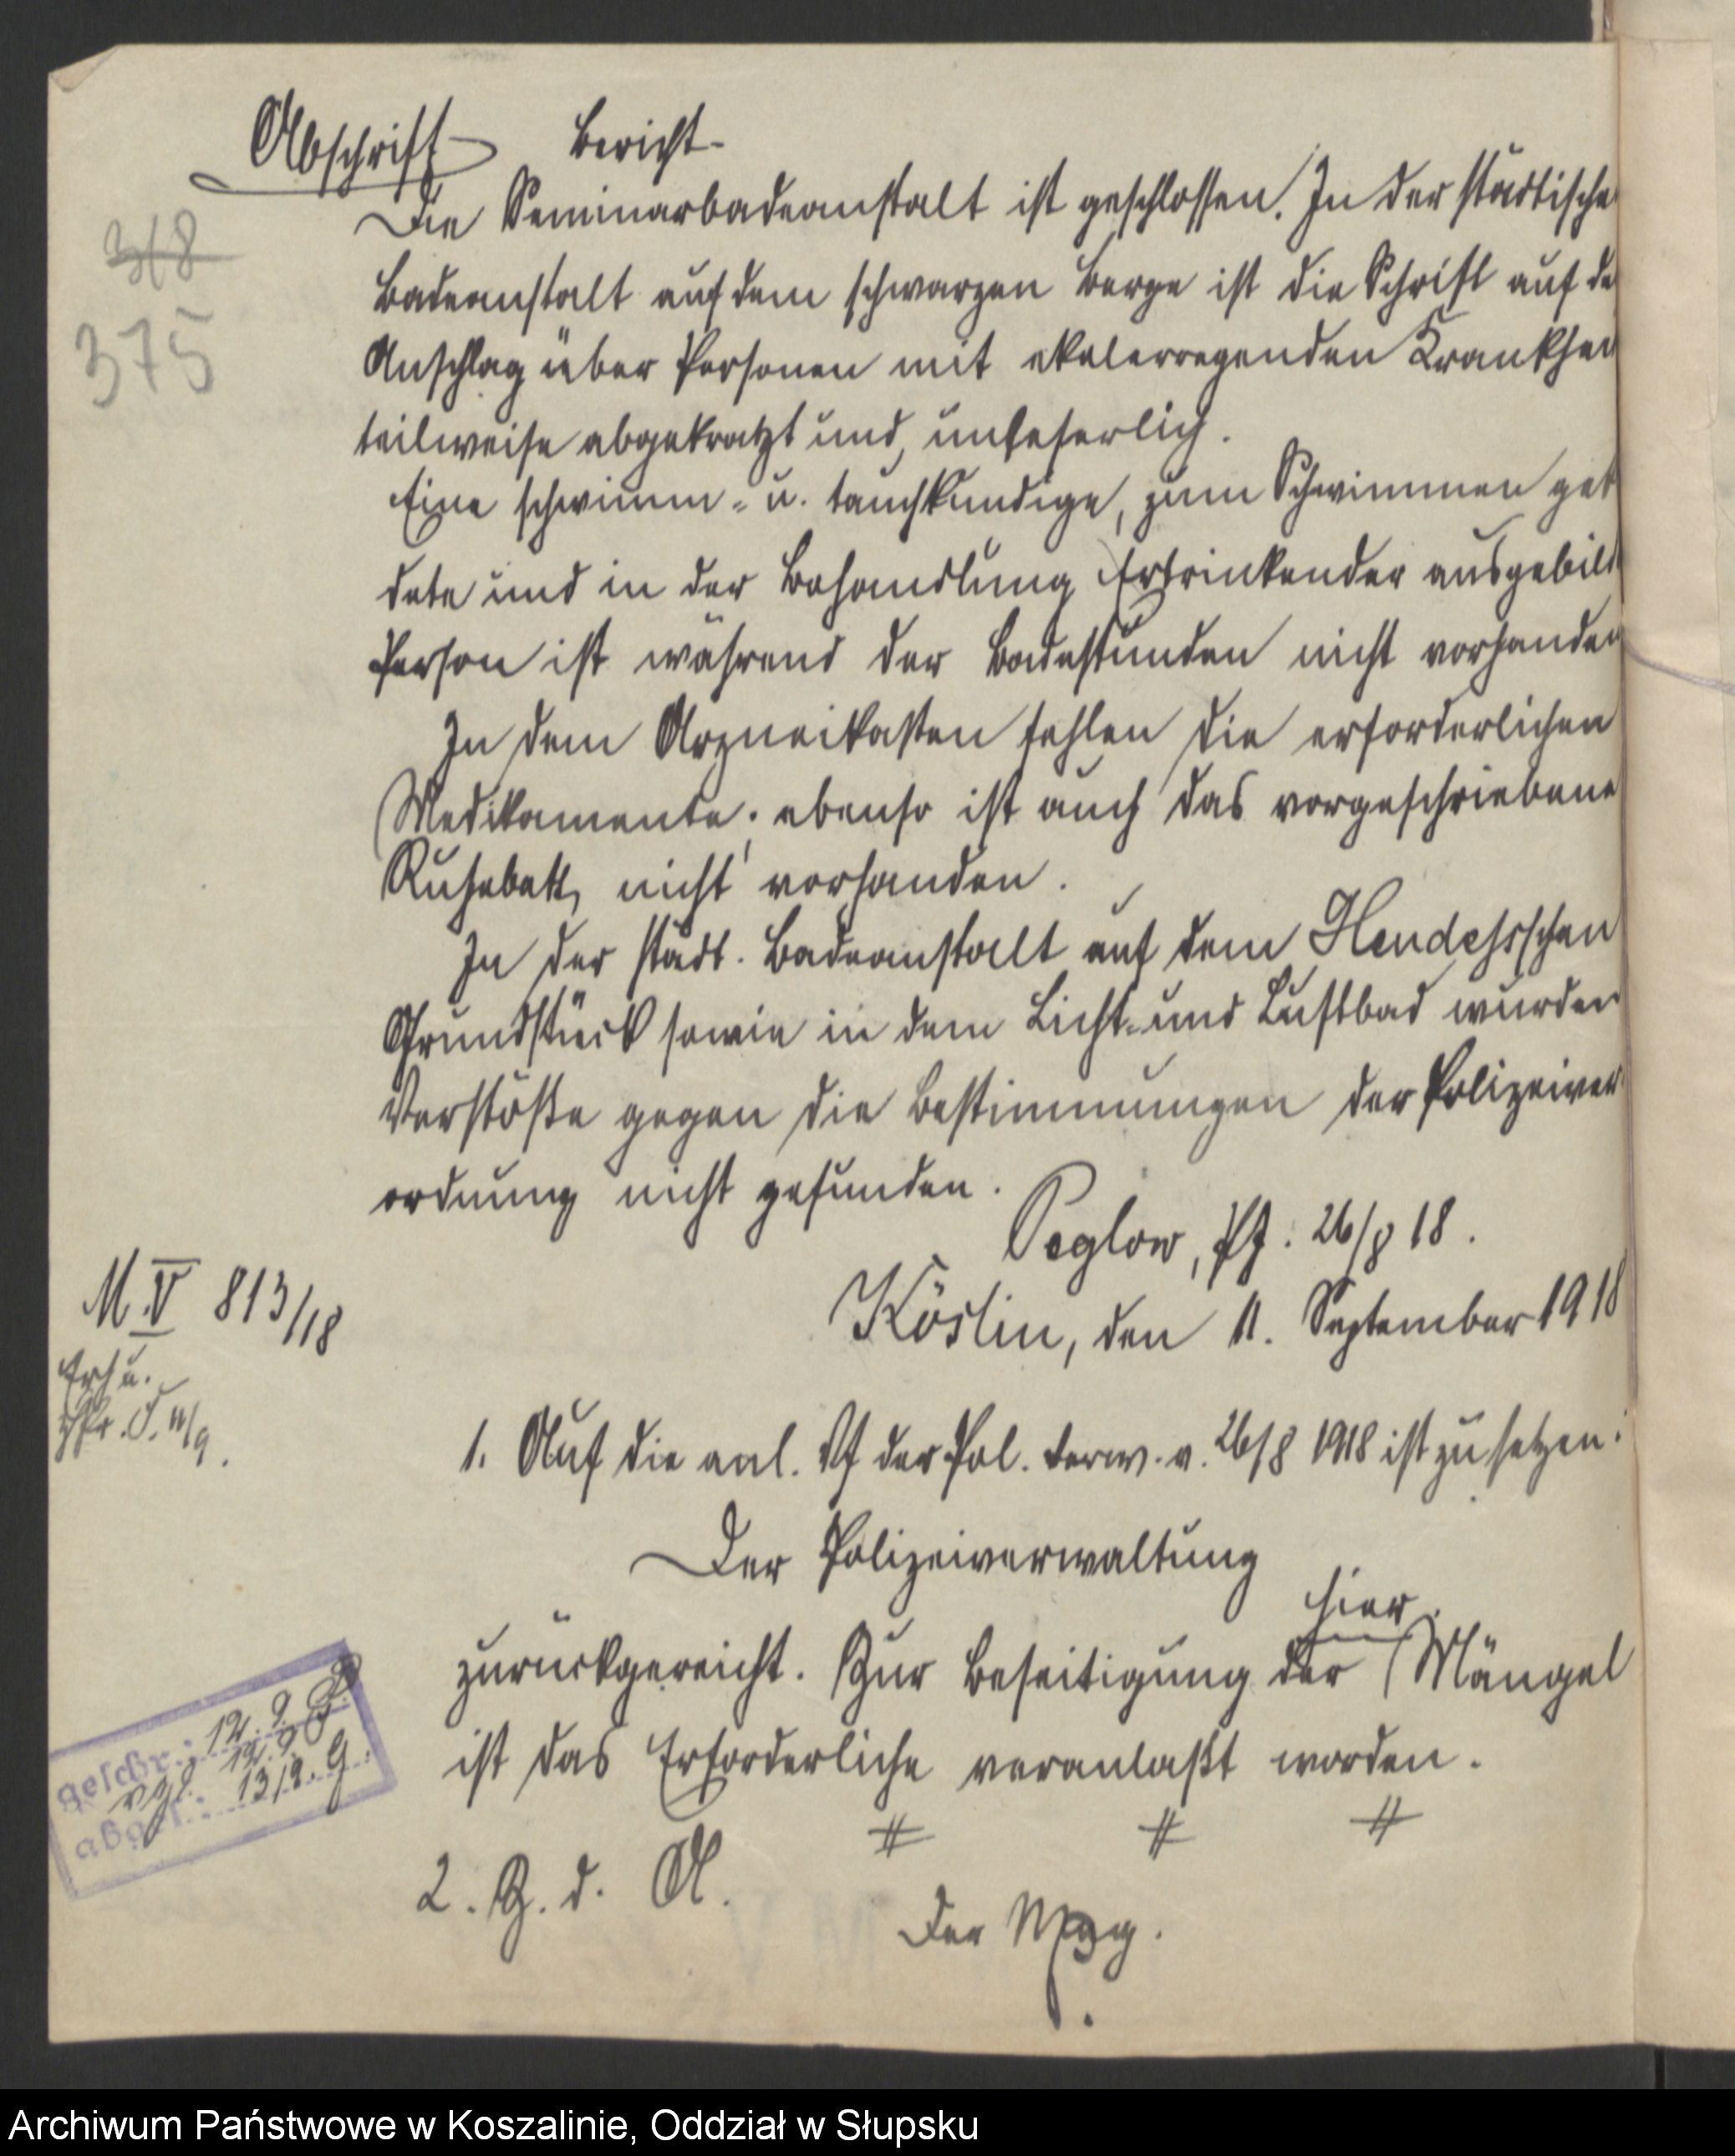 Abschrift Bericht.
318
375
Die Seminarbadeanstalt ist geschlossen. In der städtische
Badeanstalt auf dem schwarzen Berge ist die Schrift auf de
Anschlag über Personen mit ekelerregenden Krankhei
teilweise abgekratzt und unleserlich.
Eine schwimm- u. tauchkundige, zum Schwimmen
dete und in der Behandlung Ertrinkender ausgebild
Person ist während der Badestunden nicht vorhanden
In dem Arzneikasten fehlen die erforderlichen
Medikamente; ebenso ist auch das vorgeschriebene
Ruhebett nicht vorhanden.
In der städt. Badeanstalt auf dem Hendessschen
Grundstück sowie in dem Licht- und Luftbad wurden
Verstöße gegen die Bestimmungen der Polizeiver
ordnung nicht gefunden.
Peglow, 26/8 18.
M. V 813/18
Köslin, den 11. September 1918
11/9.
1. Auf die anl. Vf der Pol. Verw. v. 26/8 1918 ist zu setzen:
Der Polizeiverwaltung
hier.
zurückgereicht. Zur Beseitigung der Mängel
ist das Erforderliche veranlaßt worden.
geschr.: 12.9.
vgl. 12.9.
abges.: 13/9. G.
2. Z. d. A.
Der Mag.
Archiwum Państwowe w Koszalinie, Oddział w Słupsku